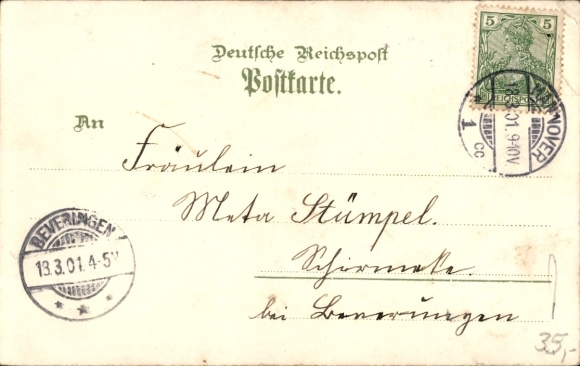 5 5
REICHSPOST
Deutsche Reichspost
Postkarte.
HANNOVER
.3.01.9-10V
1 CC
An
Fräulein
Meta Stümpel.
Schirmeke.
bei Beverungen
BEVERUNGEN
13.3.01.4-5N
35,-